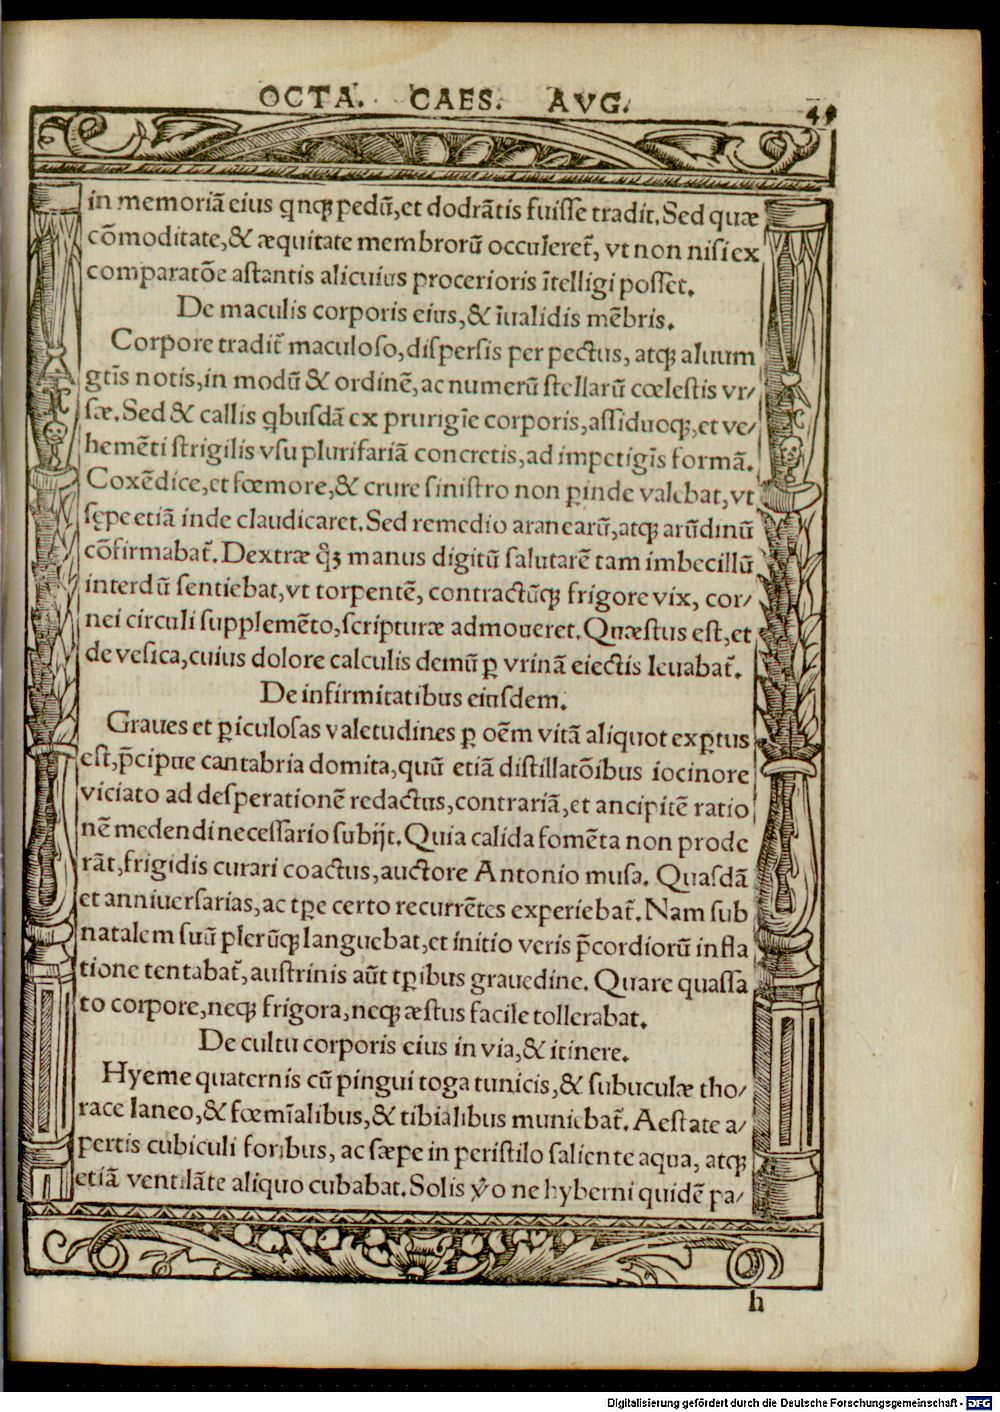 OCTA. CAES. AVG. 49
in memoriā eius qnqꝫ pedū, et dodrātis fuiſſe tradit. Sed quæ
cōmoditate, & æquitate membrorū occuleret̃, vt non niſi ex
comparatōe aſtantis alicuius procerioris ītelligi poſſet.
De maculis corporis eius, & īualidis mēbris.
Corpore tradit̃ maculoſo, diſperſis per pectus, atqꝫ aluum
gtīs notis, in modū & ordinē, ac numerū ſtellarū cœleſtis vr/
ſæ. Sed & callis qbuſdā ex prurigīe corporis, aſſiduoqꝫ, et ve/
hemēti ſtrigilis vſu plurifariā concretis, ad impetigīs formā.
Coxēdice, et fœmore, & crure ſiniſtro non ꝑinde valebat, vt
ſępe etiā inde claudicaret. Sed remedio aranearū, atqꝫ arūdinū
cōfirmabat̃. Dextræ qͦꝫ manus digitū ſalutarē tam imbecillū
interdū ſentiebat, vt torpentē, contractūqꝫ frigore vix, cor/
nei circuli ſupplemēto, ſcripturæ admoueret. Quæſtus eſt, et
de veſica, cuius dolore calculis demū ꝑ vrinā eiectis leuabat̃.
De infirmitatibus eiuſdem.
Graues et ꝑiculoſas valetudines ꝑ oēm vitā aliquot exꝑtus
eſt, p̄cipue cantabria domita, quū etiā diſtillatōibus iocinore
viciato ad deſperationē redactus, contrariā, et ancipitē ratio
nē medendi neceſſario ſubijt. Quia calida fomēta non prode
rāt, frigidis curari coactus, auctore Antonio muſa. Quaſdā
et anniuerſarias, ac tꝑe certo recurrētes experiebat̃. Nam ſub
natalem ſuū plerūqꝫ languebat, et initio veris p̄cordiorū infla
tione tentabat̃, auſtrinis aūt tꝑibus grauedine. Quare quaſſa
to corpore, neqꝫ frigora, neqꝫ æſtus facile tollerabat.
De cultu corporis eius in via, & itinere.
Hyeme quaternis cū pingui toga tunicis, & ſubuculæ tho/
race laneo, & fœmīalibus, & tibialibus muniebat̃. Aeſtate a/
pertis cubiculi foribus, ac ſæpe in periſtilo ſaliente aqua, atqꝫ
etiā ventilāte aliquo cubabat. Solis ṽo ne hyberni quidē pa/
h
Digitalisierung gefördert durch die Deutsche Forschungsgemeinschaft - DFG